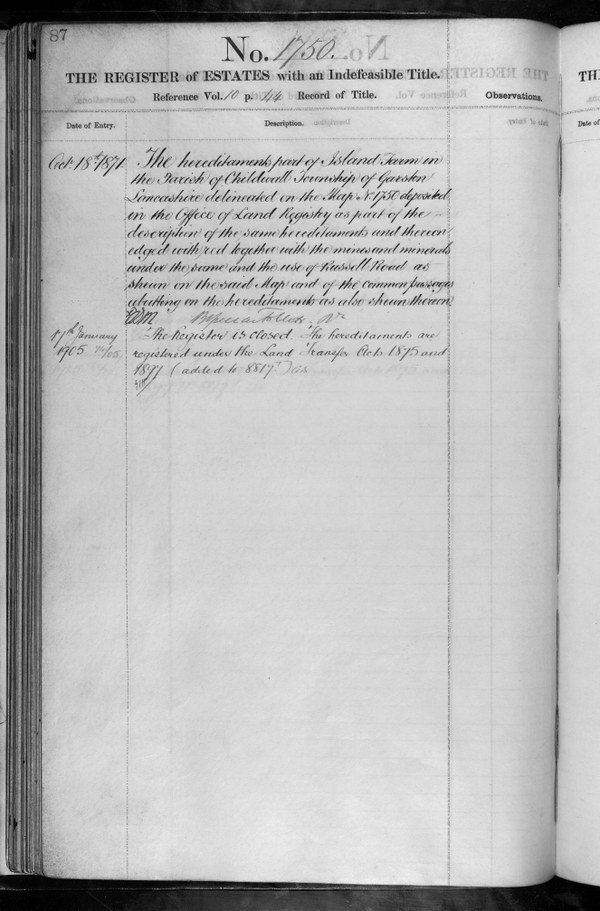 87
No. 1750.
THE REGISTER of ESTATES with an Indefeasible Title.
Reference Vol. 10 p. 44 Record of Title.
Observations.
Date of Entry.
Description.
Oct 18th 1871
The hereditaments part of Island Farm in
the Parish of Childwall Township of Garston
Lancashire delineated on the Map No 1750 deposited
in the Office of Land Registry as part of the
description of the same hereditaments and thereon
edged with red together with the mines and minerals
under the same and the use of Russell Road as
shewn on the said Map and of the common passages
abutting on the hereditaments as also shewn thereon
17th January
1905
The Register is closed The hereditaments are
registered under the Land Transfer Acts 1875 and
1897 (added to 8817)
TH
Date of